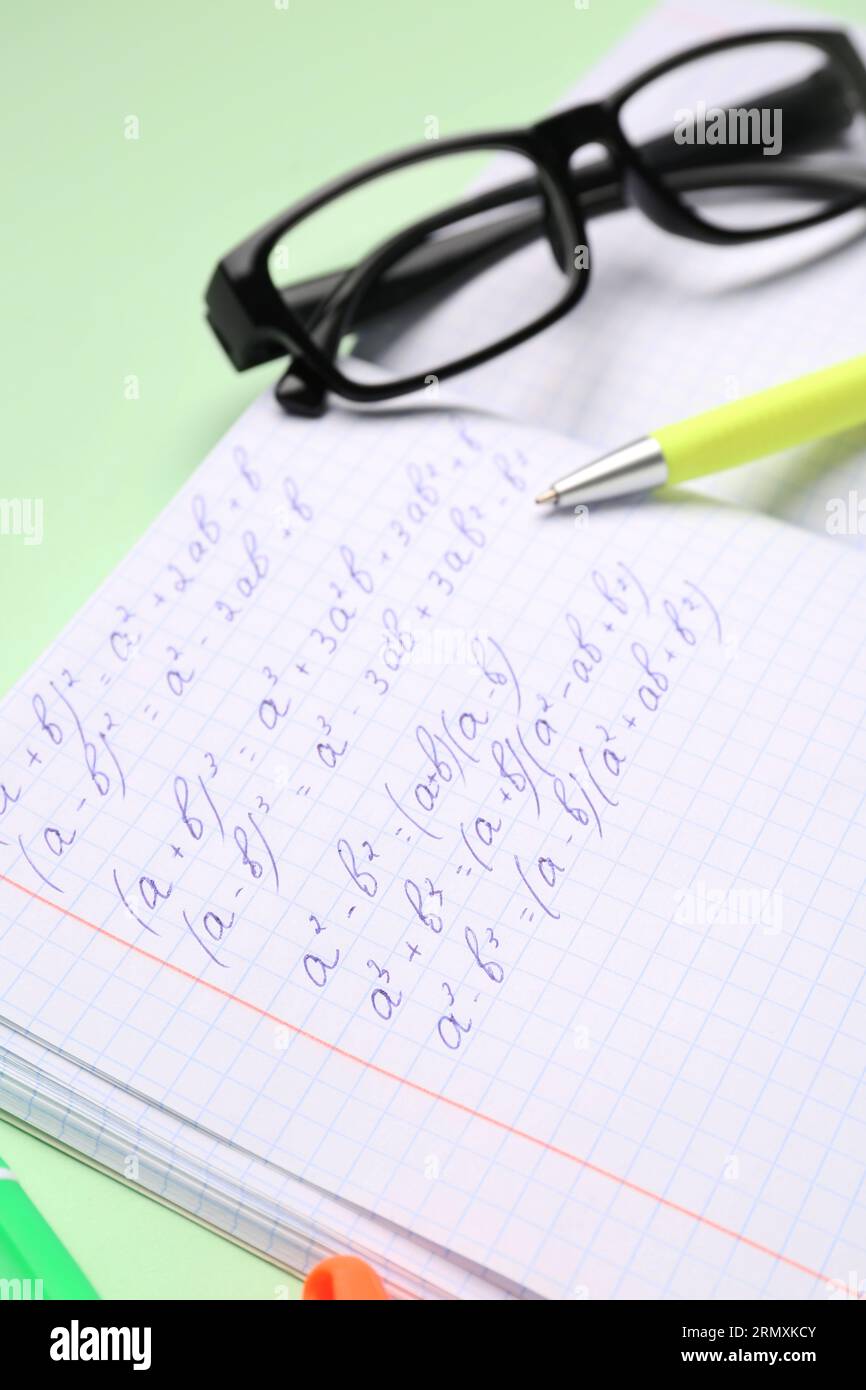 a + b)² = a² + 2ab + b
(a - b)² = a² - 2ab + b
(a + b)³ = a³ + 3a²b + 3ab² + b
(a - b)³ = a³ - 3ab + 3ab² - b
a² - b² = (a+b)(a-b)
a³ + b³ = (a+b)(a² - ab + b²)
a³ - b³ = (a-b)(a² + ab + b²)
alamy
Image ID: 2RMXKCY
www.alamy.com